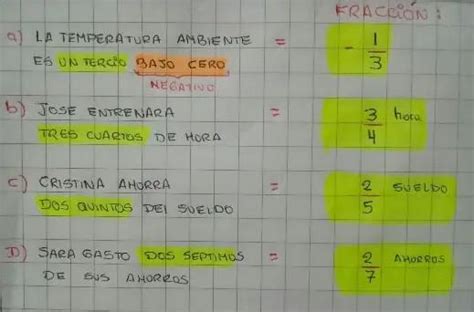 FRACCIÓN:
a) LA TEMPERATURA AMBIENTE = - 1/3
ES UN TERCIO BAJO CERO
NEGATIVO
b) JOSE ENTRENARA = 3/4 hora
TRES CUARTOS DE HORA
C) CRISTINA AHORRA = 2/5 SUELDO
DOS QUINTOS DEL SUELDO
D) SARA GASTO DOS SEPTIMOS = 2/7 AHORROS
DE SUS AHORROS